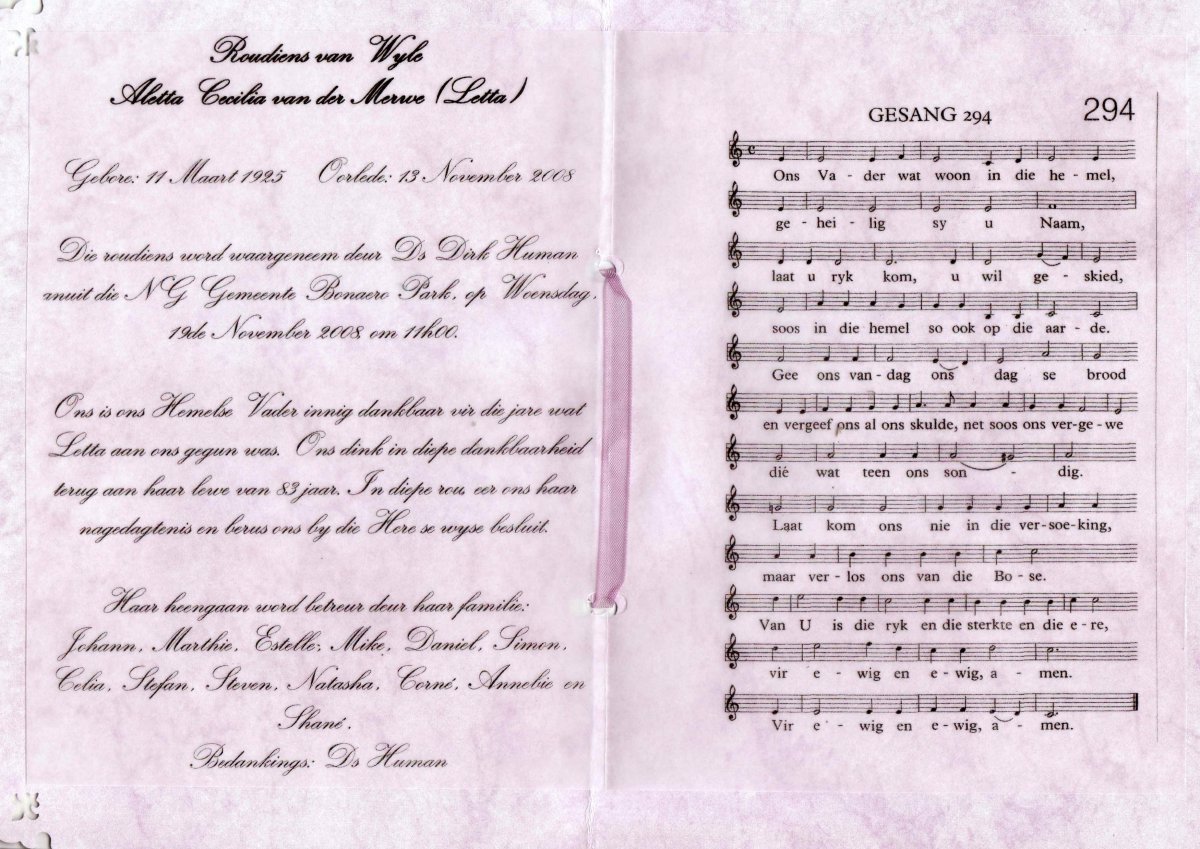 Roudiens van Wyle
Aletta Cecilia van der Merwe (Letta)
Gebore: 11 Maart 1925 Oorlede: 13 November 2008
Die roudiens word waargeneem deur Ds Dirk Human
vanuit die NG Gemeente Bonaero Park, op Woensdag,
19de November 2008, om 11h00.
Ons is ons Hemelse Vader innig dankbaar vir die jare wat
Letta aan ons gegun was. Ons dink in diepe dankbaarheid
terug aan haar lewe van 83 jaar. In diepe rou, eer ons haar
nagedagtenis en berus ons by die Here se wyse besluit.
Haar heengaan word betreur deur haar familie:
Johann, Marthie, Estelle, Mike, Daniel, Simon,
Celia, Stefan, Steven, Natasha, Corné, Annebie en
Shané.
Bedankings: Ds Human
GESANG 294 294
Ons Va - der wat woon in die he - mel,
ge - hei - lig sy u Naam,
laat u ryk kom, u wil ge - skied,
soos in die hemel so ook op die aar - de.
Gee ons van - dag ons dag se brood
en vergeef ons al ons skulde, net soos ons ver-ge-we
dié wat teen ons son - dig.
Laat kom ons nie in die ver-soe-king,
maar ver-los ons van die Bo-se.
Van U is die ryk en die sterkte en die e-re,
vir e - wig en e-wig, a - men.
Vir e - wig en e-wig, a - men.